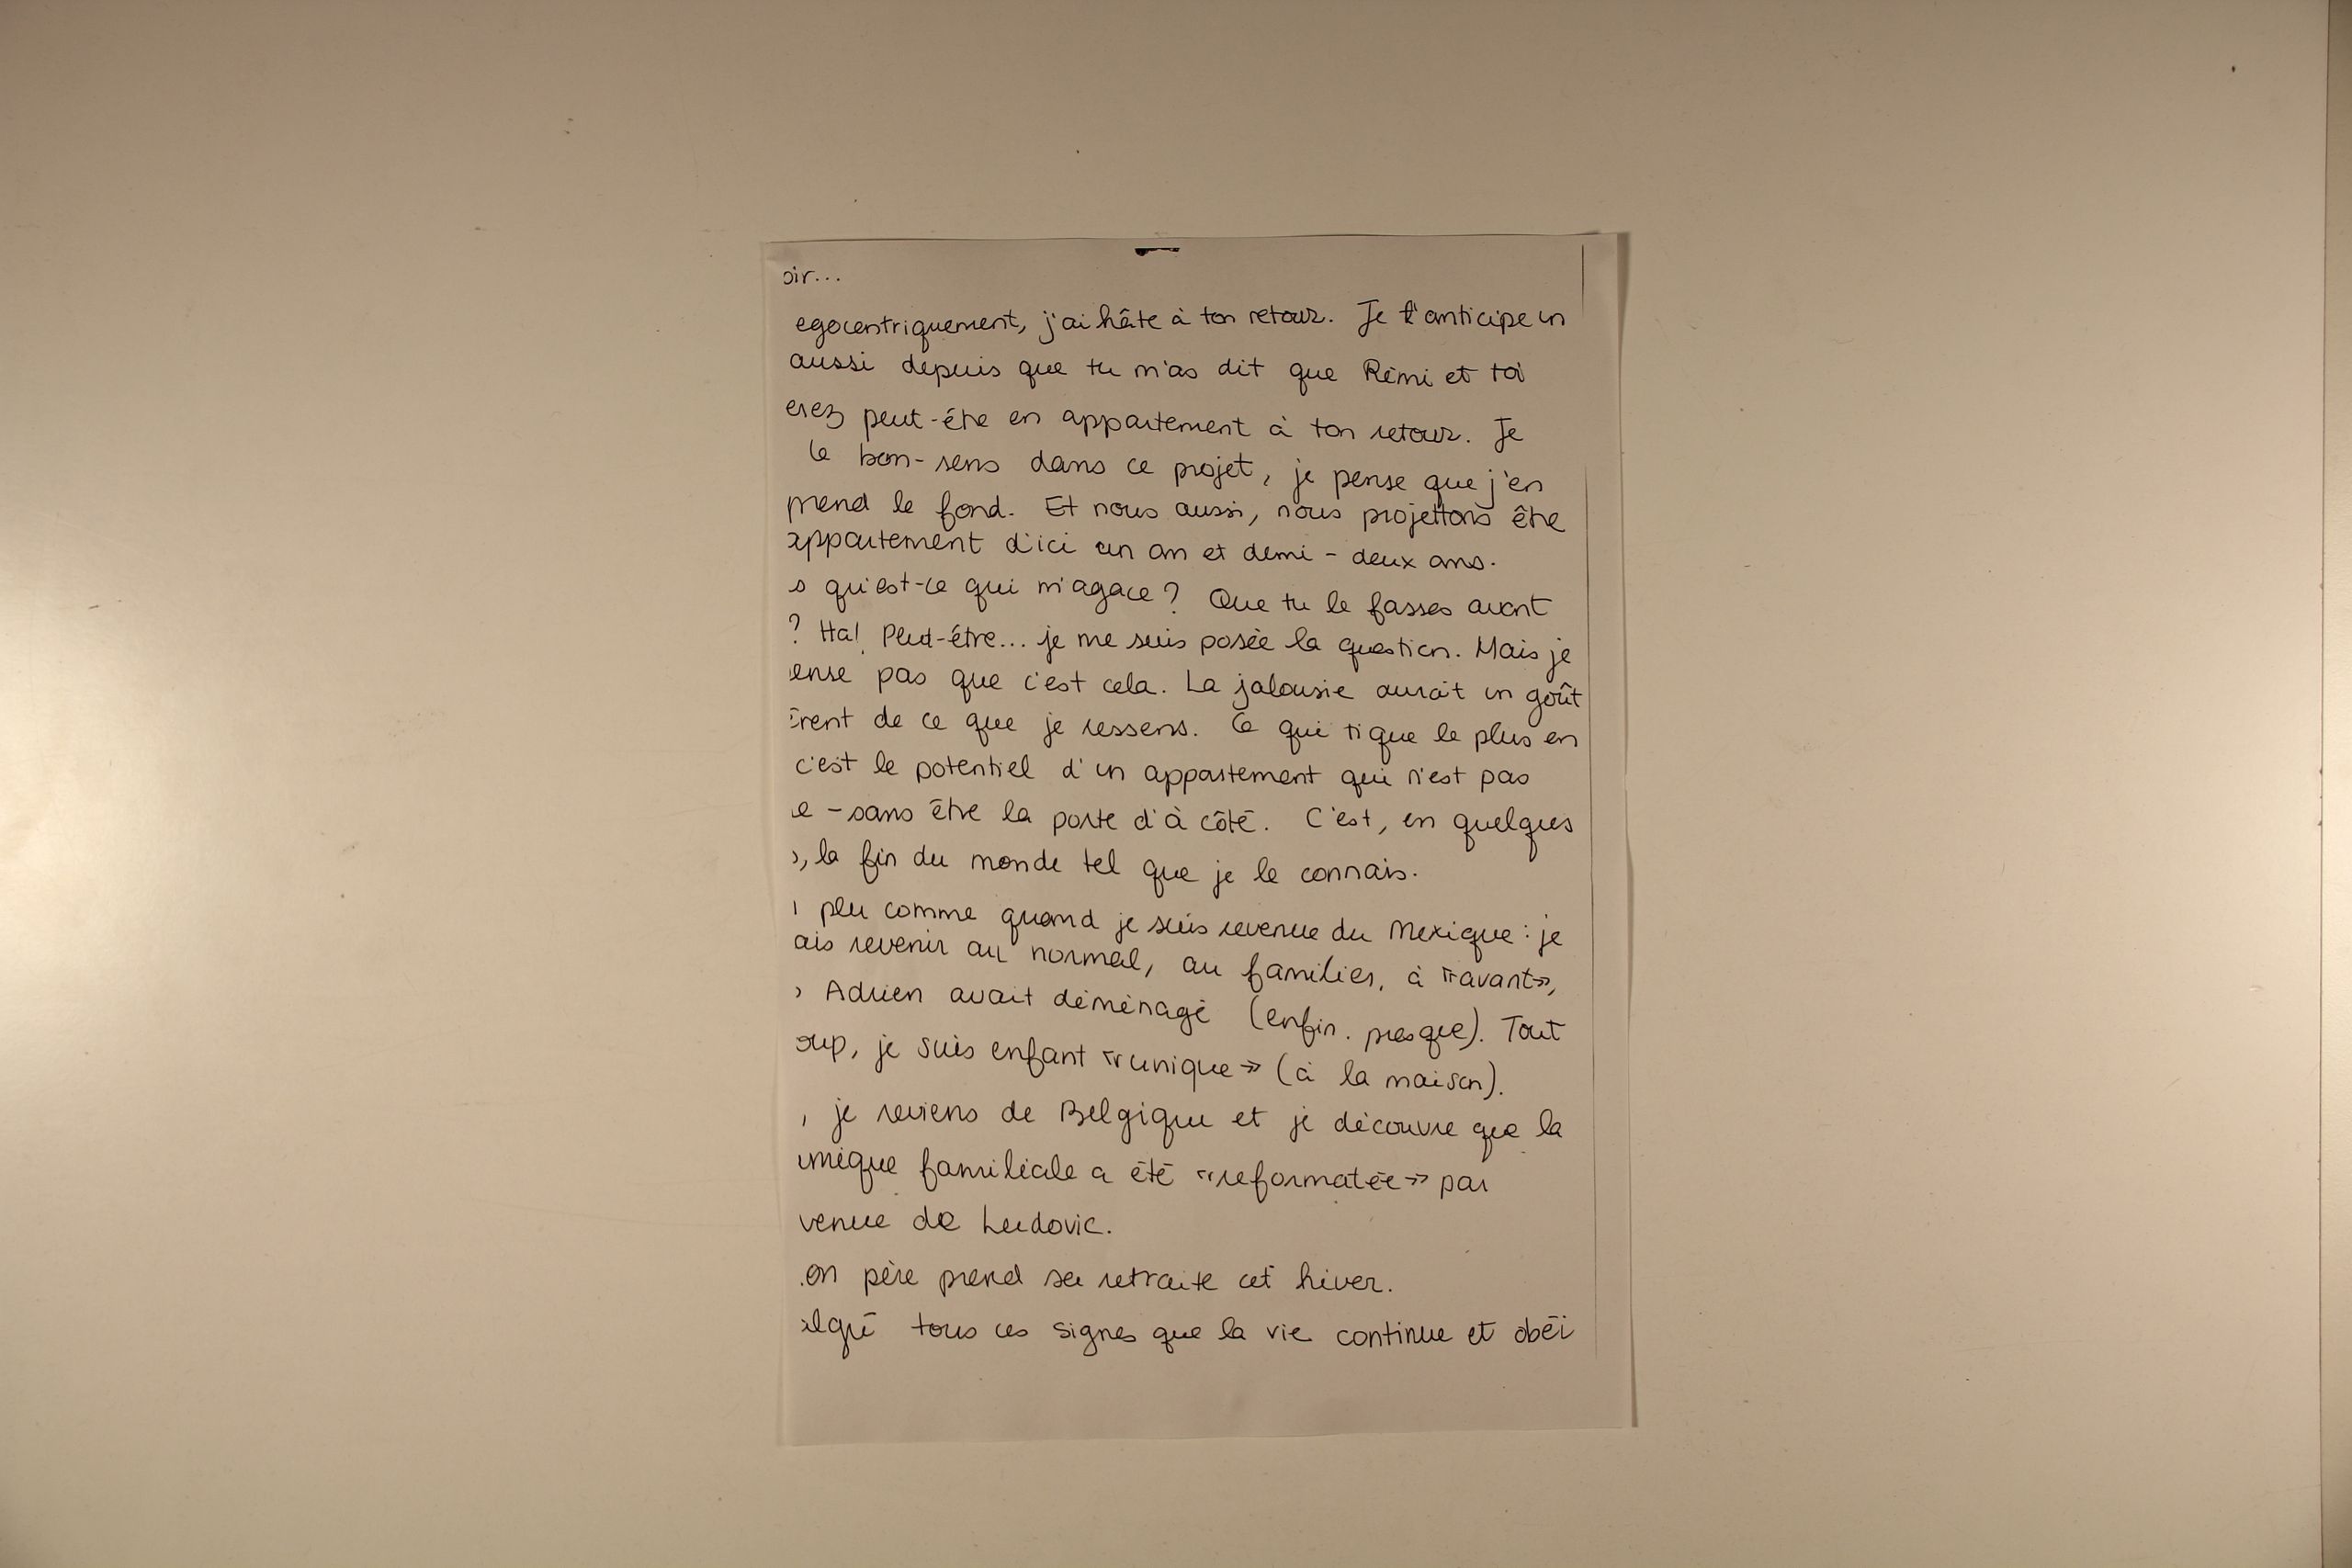 oir...
egocentriquement, j'ai hâte à ton retour. Je l'anticipe un
aussi depuis que tu m'as dit que Rémi et toi
erez peut-être en appartement à ton retour. Je
le bon-sens dans ce projet, je pense que j'en
prend le fond. Et nous aussi, nous projettons être
appartement d'ici un an et demi - deux ans.
s qu'est-ce qui m'agace? Que tu le fasses avant
? Ha! Peut-être... je me suis posée la question. Mais je
ense pas que c'est cela. La jalousie aurait un goût
érent de ce que je ressens. Ce qui tique le plus en
c'est le potentiel d'un appartement qui n'est pas
e - sans être la porte d'à côté. C'est, en quelques
s, la fin du monde tel que je le connais.
peu comme quand je suis revenue du Mexique : je
ais revenir au normal, au familier, à «avant»,
s Adrien avait déménagé (enfin. presque). Tout
oup, je suis enfant «unique» (à la maison).
, je reviens de Belgique et je découvre que la
mique familiale a été «reformatée» par
venue de Ludovic.
on père prend sa retraite cet hiver.
algré tous ces signes que la vie continue et obéi